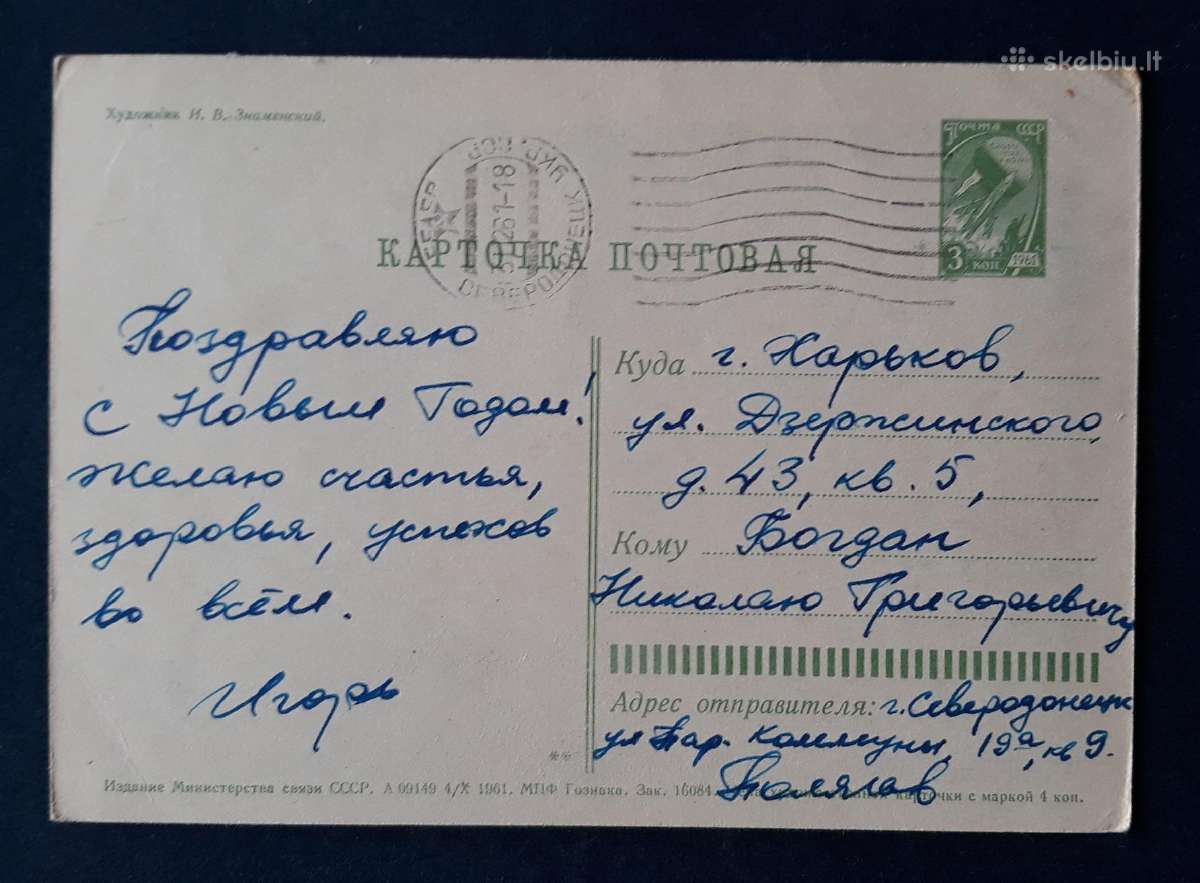 skelbiu.lt
Художник И. В. Знаменский.
ПОЧТА СССР
3 КОП 1961
КАРТОЧКА ПОЧТОВАЯ
Поздравляю
с Новым Годом!
Желаю счастья,
здоровья, успехов
во всём.
Игорь
Куда г. Харьков,
ул. Дзержинского,
д. 43, кв. 5,
Кому Богдан
Николаю Григорьевичу
Адрес отправителя: г. Северодонецк
ул Пар. Коммуны, 19а, кв 9.
Издание Министерства связи СССР. А 09149 4/X 1961. МПФ Гознака. Зак. 16084. карточки с маркой 4 коп.